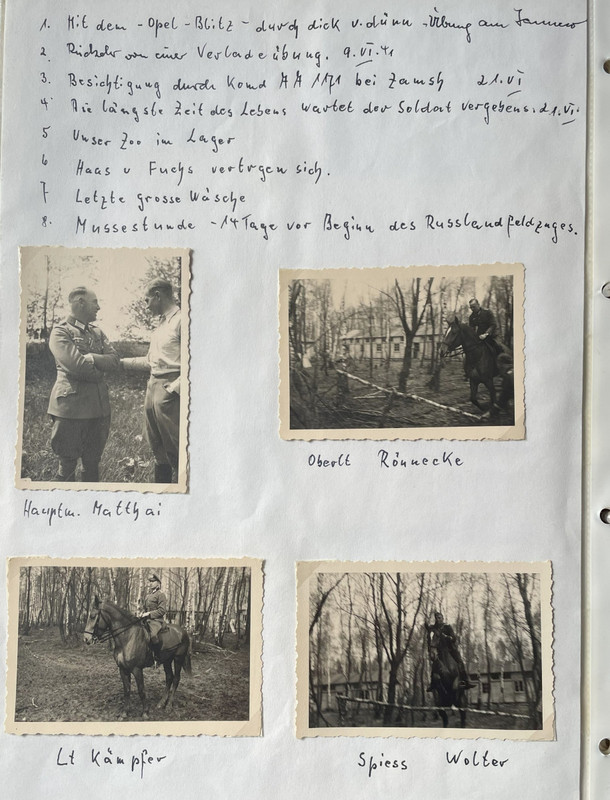 1. Mit dem - Opel-Blitz - durch dick u. dünn - Übung am
2. Rückkehr von einer Verladeübung. 9.VI.41
3. Besichtigung durch Komd AA 171 bei Zamsh 21.VI
4. Die längste Zeit des Lebens wartet der Soldat vergebens. 21.VI.
5 Unser Zoo im Lager
6 Haas u Fuchs vertragen sich.
7 Letzte grosse Wäsche
8. Mussestunde - 14 Tage vor Beginn des Russlandfeldzuges.
Oberlt Rönnecke
Hauptm. Matthai
Lt Kämpfer
Spiess Wolter